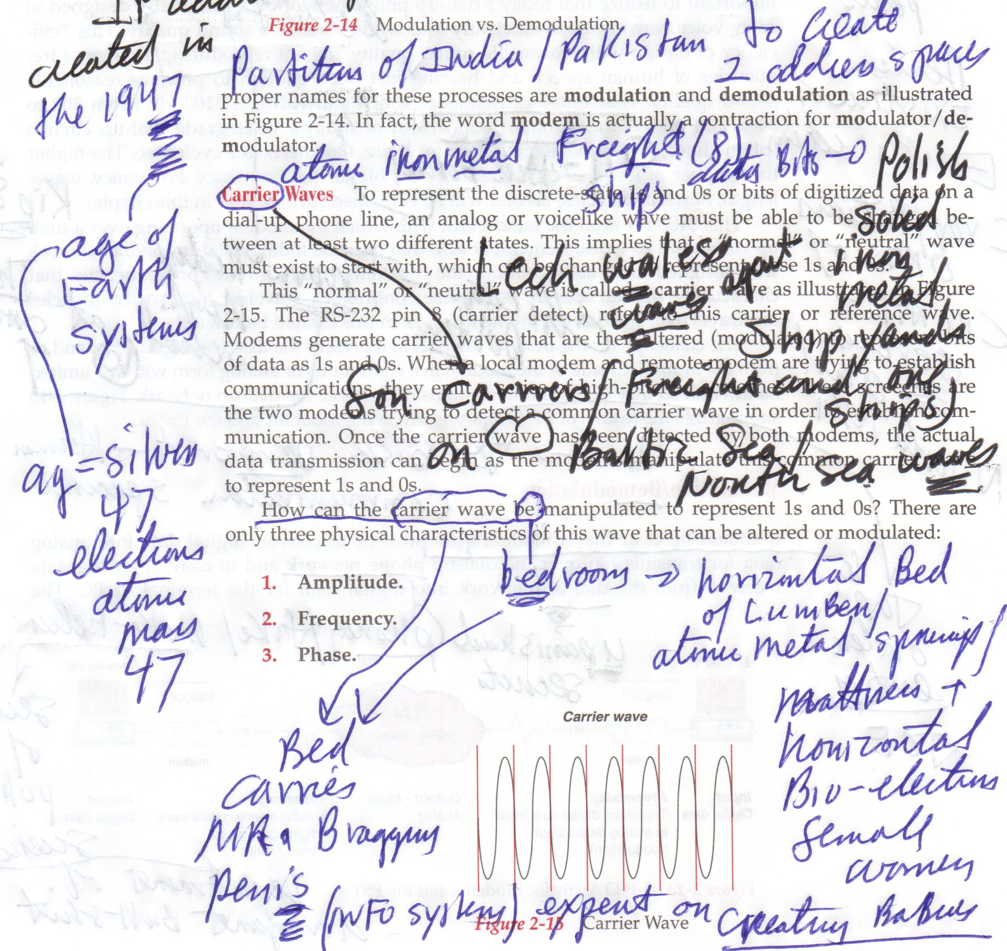 created in
the 1947
Figure 2-14 Modulation vs. Demodulation.
Partitions of India / Pakistan to create
2 address spaces
proper names for these processes are modulation and demodulation as illustrated
in Figure 2-14. In fact, the word modem is actually a contraction for modulator/de-
modulator.
atomic iron metal Freight (8)
Ships
data Bits →
Polish
Solid
iron
metal
Carrier Waves To represent the discrete-state 1s and 0s or bits of digitized data on a
dial-up phone line, an analog or voicelike wave must be able to be shaped be-
tween at least two different states. This implies that a "normal" or "neutral" wave
must exist to start with, which can be changed to represent these 1s and 0s.
Lech wales
waves
Ship yards
This "normal" or "neutral" wave is called a carrier wave as illustrated in Figure
2-15. The RS-232 pin 8 (carrier detect) refers to this carrier or reference wave.
Modems generate carrier waves that are then altered (modulated) to represent bits
of data as 1s and 0s. When a local modem and remote modem are trying to establish
communications, they emit a series of high-pitched screeches. These screeches are
the two modems trying to detect a common carrier wave in order to establish com-
munication. Once the carrier wave has been detected by both modems, the actual
data transmission can begin as the modems manipulate this common carrier wave
to represent 1s and 0s.
Carriers / Freight
Ships)
on Baltic Sea /
North sea waves
age of
Earth
systems
ag = silver
47
electrons
atomic
mass
47
How can the carrier wave be manipulated to represent 1s and 0s? There are
only three physical characteristics of this wave that can be altered or modulated:
1. Amplitude.
2. Frequency.
3. Phase.
bedrooms → horizontal Bed
of Lumber /
atomic metal springs /
mattress +
horizontal
Bio-electrons
female
women
Bed
Carries
MR. Braggus
penis
(INFO systems) expert on Creating Babies
Carrier wave
Figure 2-15 Carrier Wave